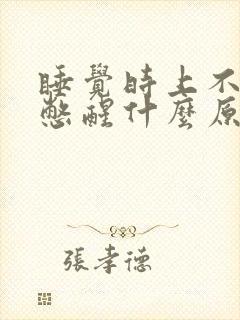 睡覺時上不
憋醒什麼原
張孝德